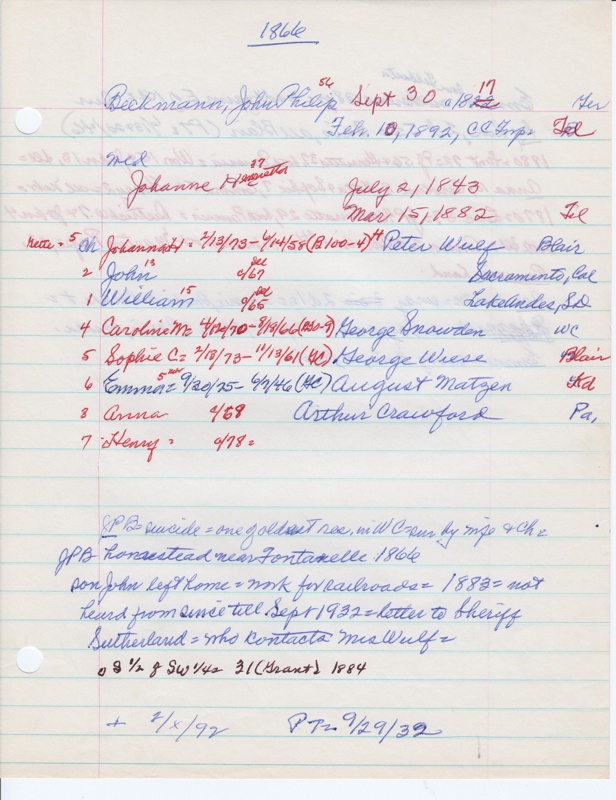 1866
Beckmann, John Philip 56 Sept 30 a1822 17 Ger
Feb. 10, 1892, CC Imp= Fd
med
Johanne H 37 July 2, 1843
Mar 15, 1882 Tel
Nette = 5 Ch Johanna H = 2/13/73 - 6/14/58 (B100-4) H Peter Wulf Blair
2 John 13 c/67 Sacramento, Cal
1 William 15 c/65 Lake Andes, S.D
4 Caroline M= 4/12/70 - 9/19/66 George Snowden WC
5 Sophie C= 2/13/73 - 11/13/61 (YC) George Wiese Blair
6 Emma = 9/20/75 - 6/7/46 (YC) August Matzen Kd
3 Anna c/69 Arthur Crawford Pa,
7 Henry = c/78 =
JPB = suicide = one of oldest res, in WC = sur by wife & Ch =
JPB homestead near Fontanelle 1866
son John left home = work for railroads = 1883 = not
heard from since till Sept 1932 = letter to Sheriff
Sutherland = who contacts Mrs Wulf =
o S 1/2 of SW 1/4 = 31 (Grant) 1884
+ 2/x/92 PT = 9/29/32